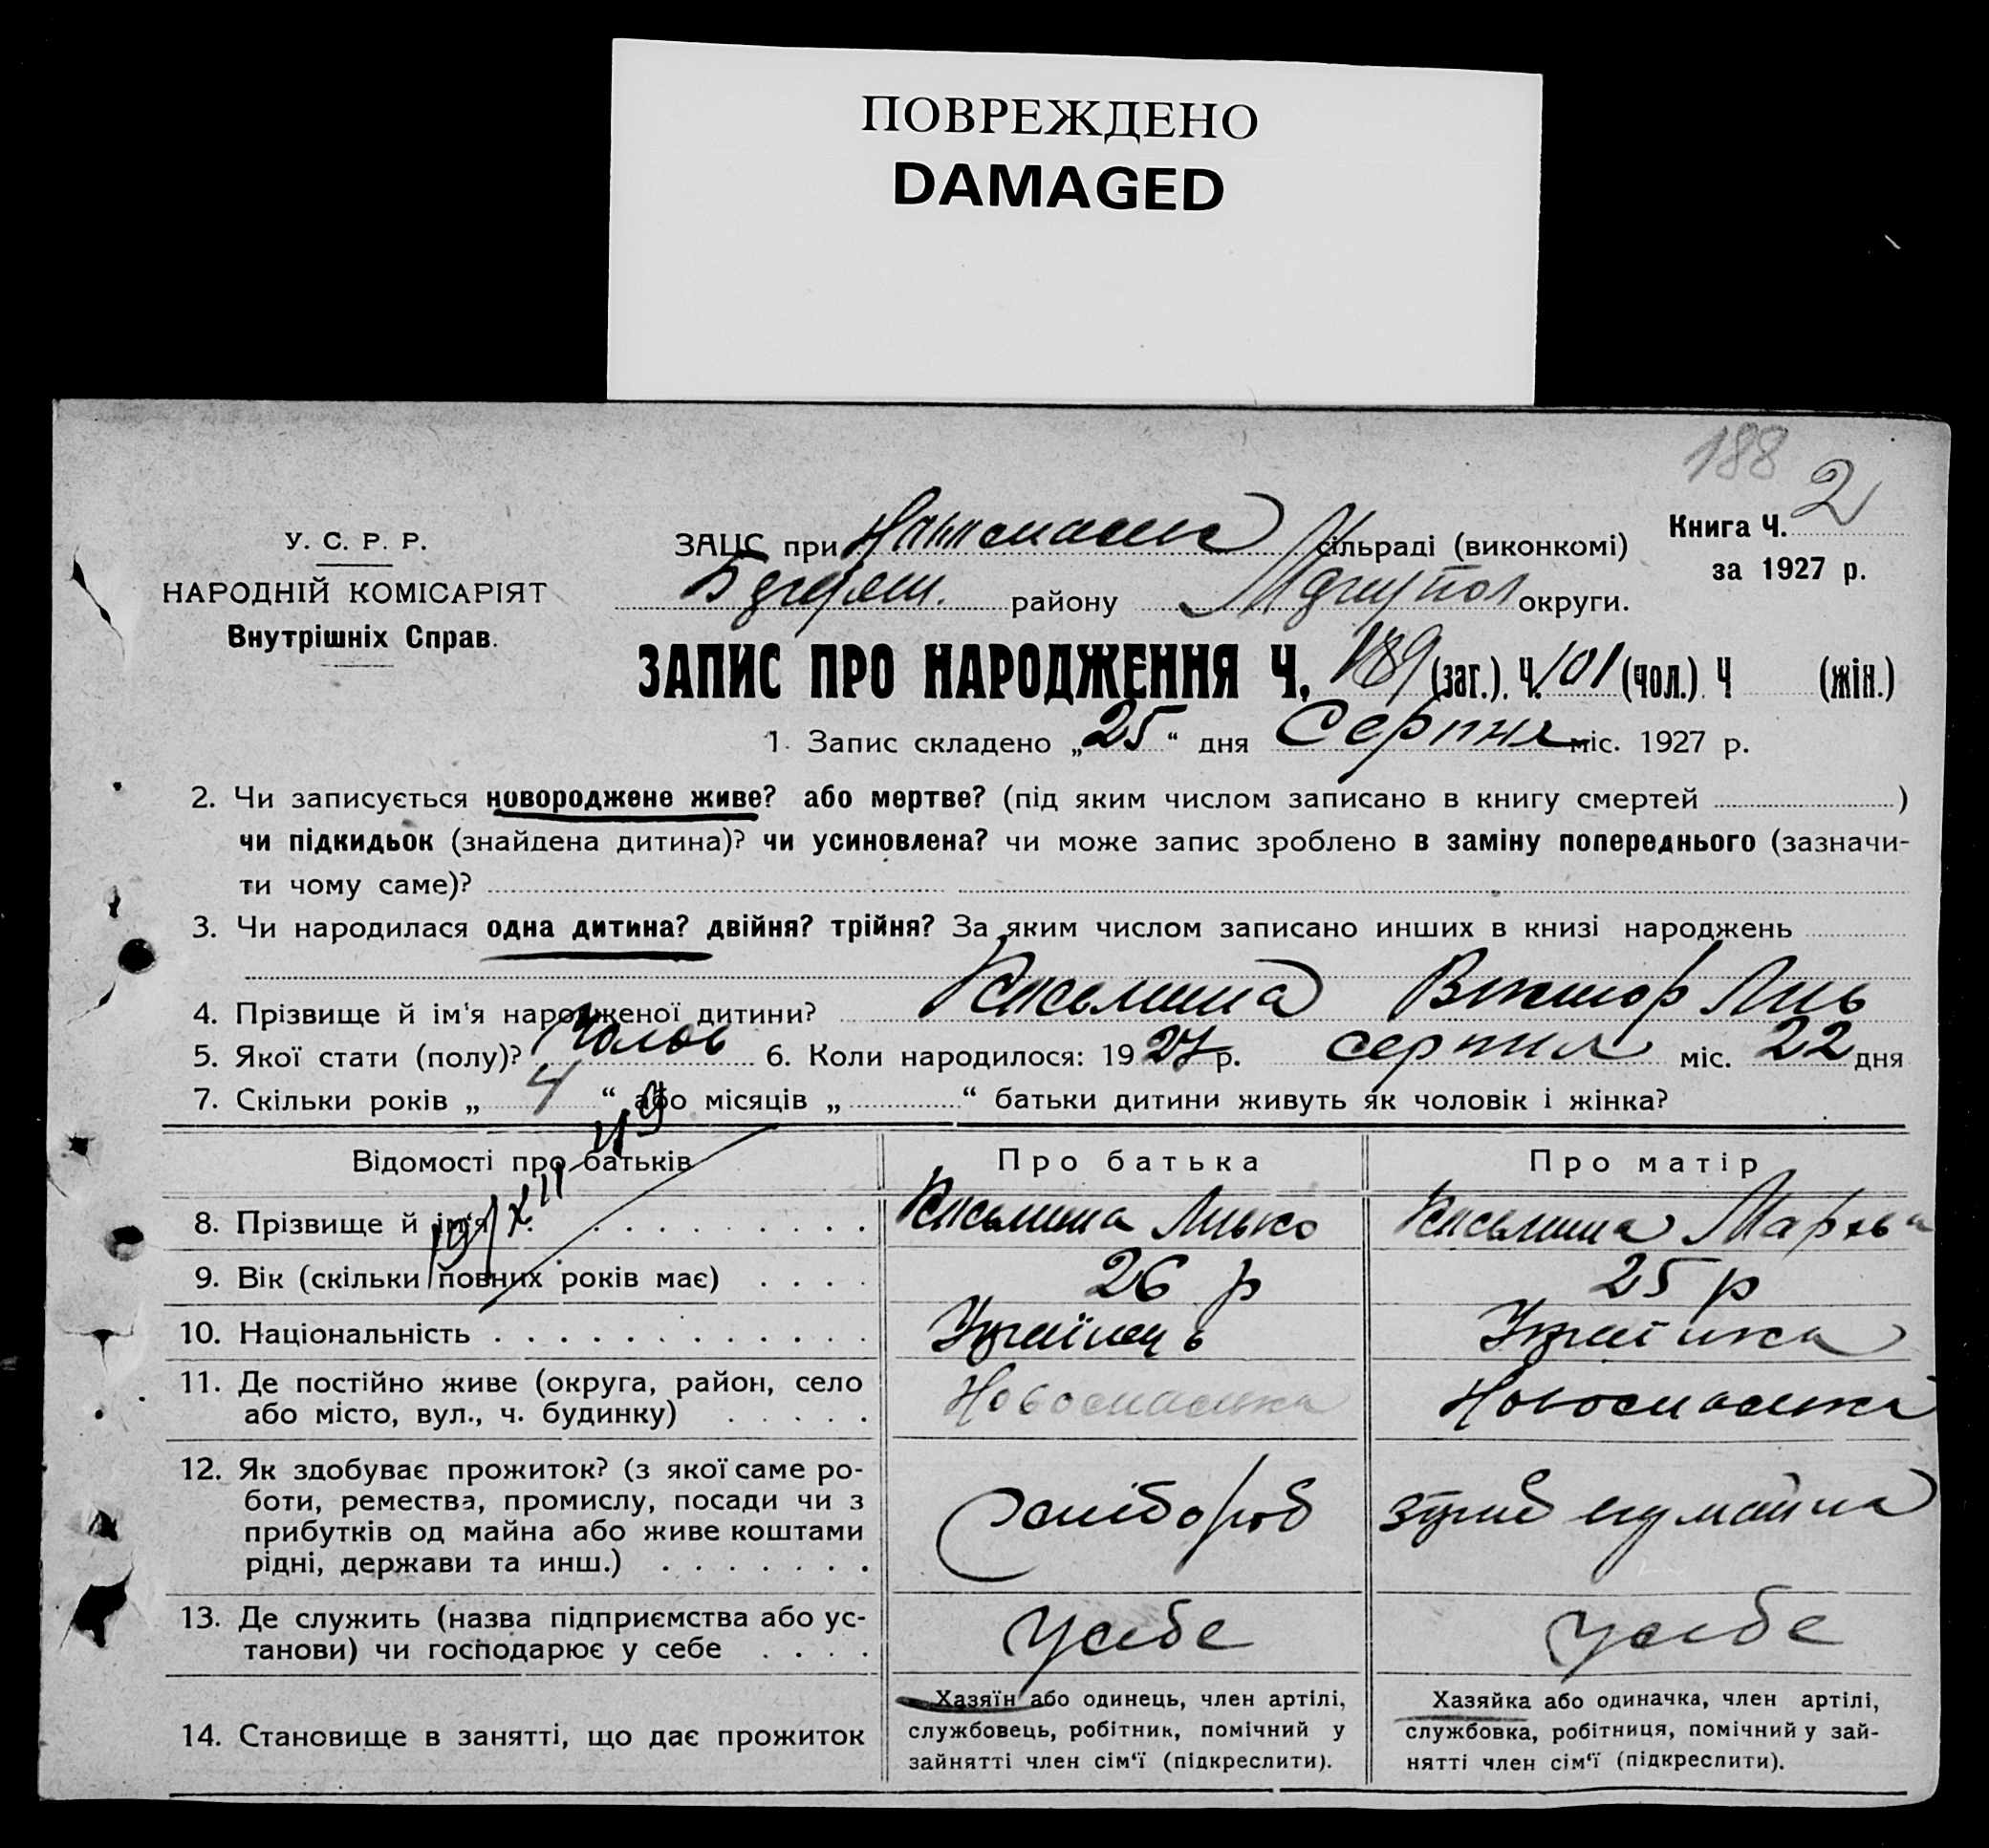 ПОВРЕЖДЕНО
DAMAGED
188
2
У. С. Р. Р.
НАРОДНІЙ КОМІСАРІЯТ
Внутрішніх Справ.
ЗАЦС при сільраді (виконкомі)
Книга Ч.
за 1927 р.
району округи.
ЗАПИС ПРО НАРОДЖЕННЯ Ч. 189 (заг.). Ч. 101 (чол.) Ч (жін.)
1. Запис складено „25“ дня Серпня міс. 1927 р.
2. Чи записується новороджене живе? або мертве? (під яким числом записано в книгу смертей )
чи підкидьок (знайдена дитина)? чи усиновлена? чи може запис зроблено в заміну попереднього (зазначи-
ти чому саме)?
3. Чи народилася одна дитина? двійня? трійня? За яким числом записано инших в книзі народжень
4. Прізвище й ім'я народженої дитини? Віктор
5. Якої стати (полу)? Чолов 6. Коли народилося: 1927 р. серпня міс. 22 дня
7. Скільки років „ 4 “ або місяців „ “ батьки дитини живуть як чоловік і жінка?
Відомості про батьків Про батька Про матір
8. Прізвище й ім'я
9. Вік (скільки повних років має) 26 р 25 р
10. Національність Українець Українка
11. Де постійно живе (округа, район, село
або місто, вул., ч. будинку) Новоспаська Новоспаська
12. Як здобуває прожиток? (з якої саме ро-
боти, ремества, промислу, посади чи з
прибутків од майна або живе коштами
рідні, держави та инш.) Хлібороб
13. Де служить (назва підприємства або ус-
танови) чи господарює у себе У себе У себе
14. Становище в занятті, що дає прожиток
Хазяїн або одинець, член артілі,
службовець, робітник, помічний у
зайнятті член сім'ї (підкреслити).
Хазяйка або одиначка, член артілі,
службовка, робітниця, помічний у зай-
нятті член сім'ї (підкреслити).